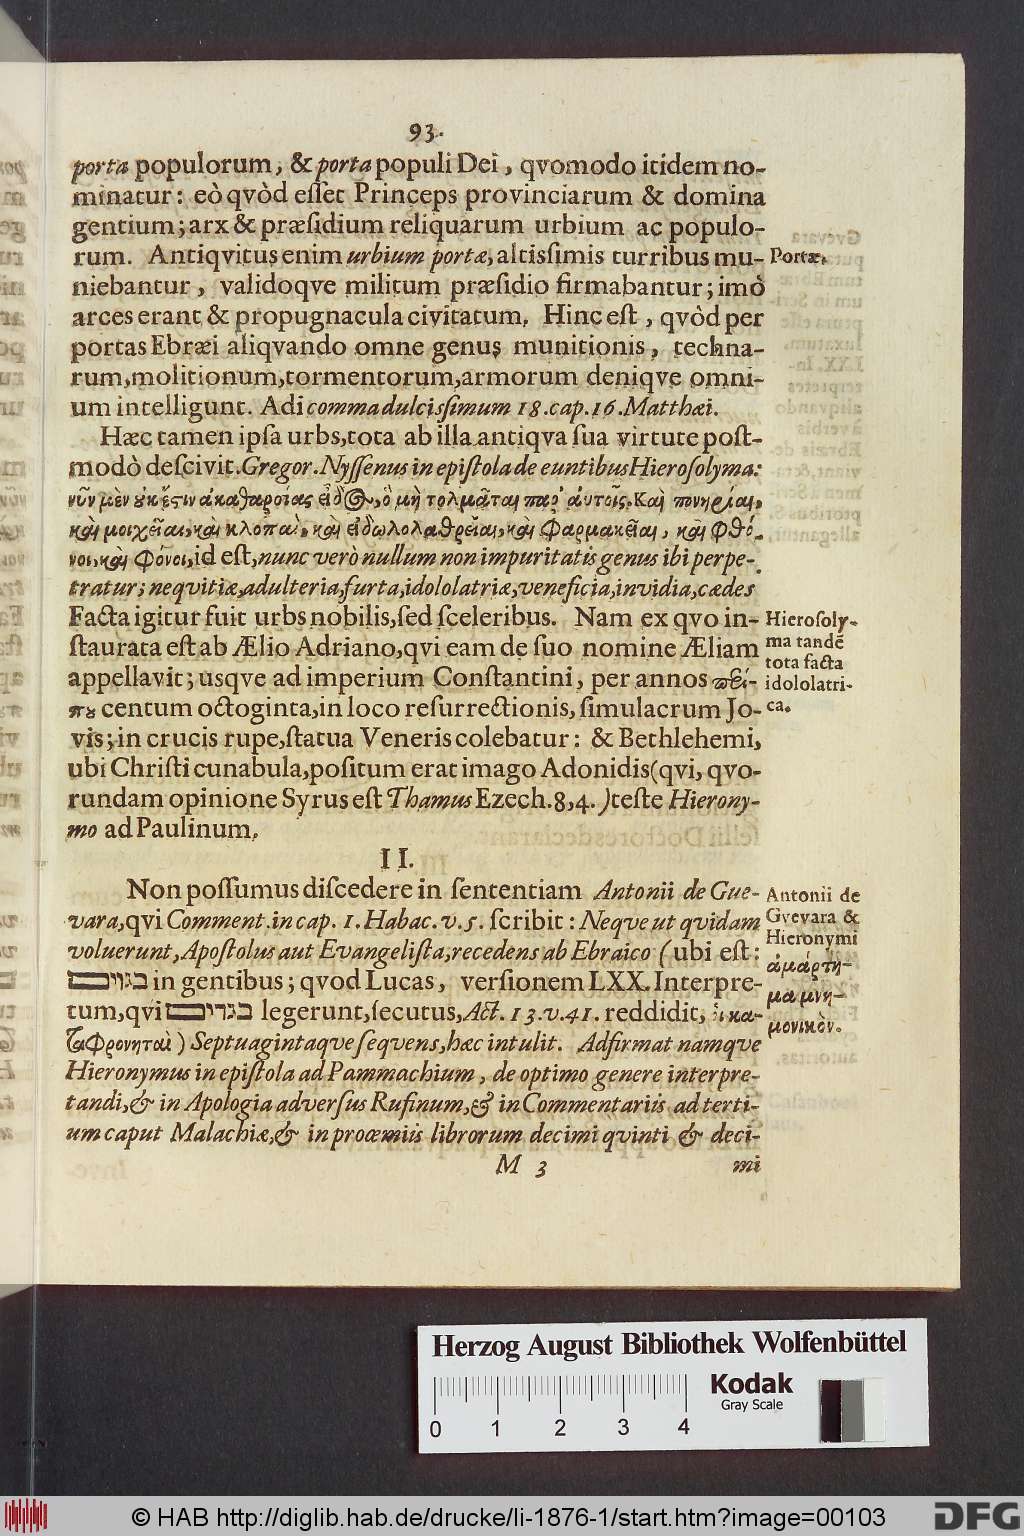 93.
porta populorum, & porta populi Dei, qvomodo itidem no-
minatur: eò qvòd eſſet Princeps provinciarum & domina
gentium; arx & præſidium reliquarum urbium ac populo-
rum. Antiqvitus enim urbium portæ, altisſimis turribus mu-
niebantur, validoqve militum præſidio firmabantur; imò
arces erant & propugnacula civitatum. Hinc eſt, qvòd per
portas Ebræi aliqvando omne genus munitionis, techna-
rum, molitionum, tormentorum, armorum deniqve omni-
um intelligunt. Adi comma dulcisſimum 18. cap. 16. Matthæi.
Portæ.
Hæc tamen ipſa urbs, tota ab illa antiqva ſua virtute poſt-
modò deſcivit. Gregor. Nyſſenus in epiſtola de euntibus Hieroſolyma:
νῦν μὲν ȣκ ἔϛιν ἀκαθαρσίας εἶδ⊙, ὃ μὴ τολμᾶται παρ' ἀυτοῖς. Καὶ πονηρίαι,
καὶ μοιχεῖαι, καὶ κλοπαὶ, καὶ εἰδωλολαθρεῖαι, καὶ φαρμακεῖαι, καὶ φθό-
νοι, καὶ φόνοι, id eſt, nunc verò nullum non impuritatis genus ibi perpe-
tratur; neqvitiæ, adulteria, furta, idololatriæ, veneficia, invidia, cædes
Facta igitur fuit urbs nobilis, ſed ſceleribus. Nam ex qvo in-
ſtaurata eſt ab Ælio Adriano, qvi eam de ſuo nomine Æliam
appellavit; usqve ad imperium Conſtantini, per annos ϖεί-
πȣ centum octoginta, in loco reſurrectionis, ſimulacrum Jo-
vis; in crucis rupe, ſtatua Veneris colebatur: & Bethlehemi,
ubi Chriſti cunabula, poſitum erat imago Adonidis (qvi, qvo-
rundam opinione Syrus eſt Thamus Ezech. 8, 4.) teſte Hierony-
mo ad Paulinum.
Hieroſoly-
ma tandē
tota facta
idololatri-
ca.
II.
Non poſſumus diſcedere in ſententiam Antonii de Gue-
vara, qvi Comment. in cap. 1. Habac. v. 5. ſcribit: Neqve ut qvidam
voluerunt, Apoſtolus aut Evangeliſta, recedens ab Ebraico (ubi eſt:
בגוים in gentibus; qvod Lucas, verſionem LXX. Interpre-
tum, qvi בגדים legerunt, ſecutus, Act. 13. v. 41. reddidit, οἱ κα-
ταφρονηταὶ) Septuagintaqve ſeqvens, hæc intulit. Adfirmat namqve
Hieronymus in epiſtola ad Pammachium, de optimo genere interpre-
tandi, & in Apologia adverſus Rufinum, & in Commentariis ad terti-
um caput Malachiæ, & in proœmiis librorum decimi qvinti & deci-
Antonii de
Gvevara &
Hieronymi
ἁμάρτη-
μα μνη-
μονικὸν.
M 3
mi
Herzog August Bibliothek Wolfenbüttel
0 1 2 3 4
Kodak
Gray Scale
© HAB http://diglib.hab.de/drucke/li-1876-1/start.htm?image=00103
DFG